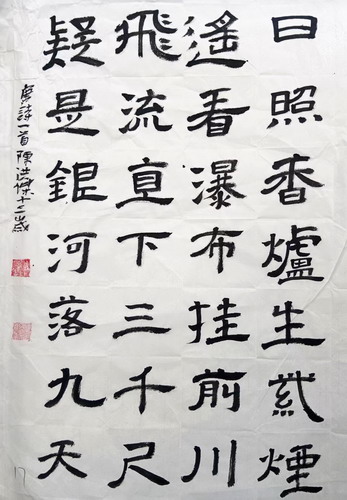 日照香爐生紫煙
遙看瀑布挂前川
飛流直下三千尺
疑是銀河落九天
唐詩一首 陳洪傑十二歲